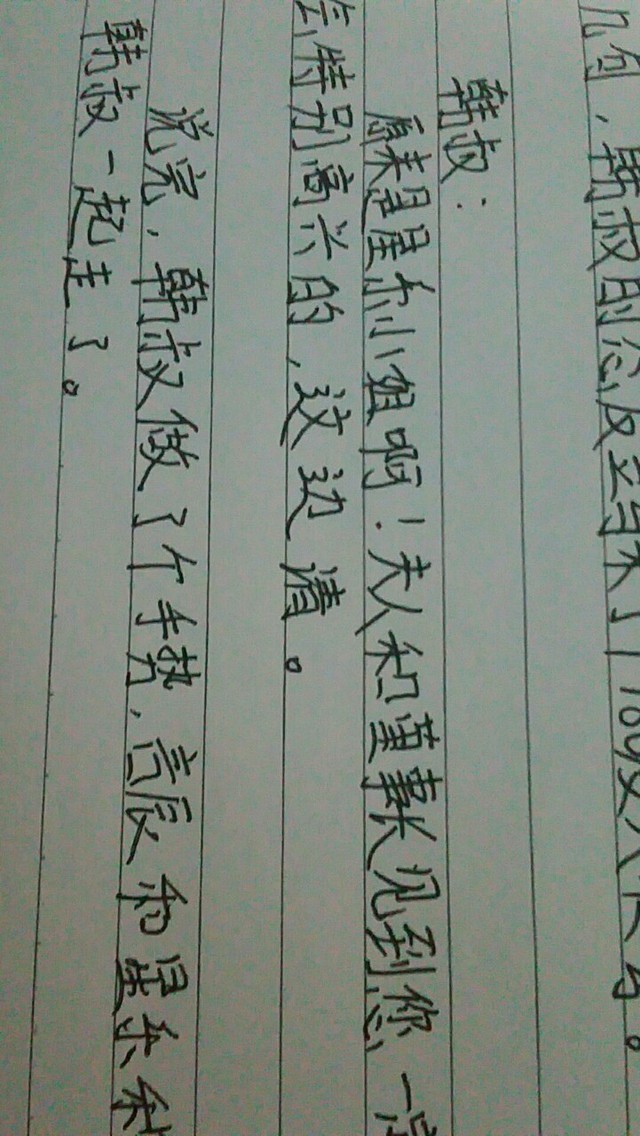 几句，韩叔的态度立马来了个180度大转弯。
韩叔：
原来是星乐小姐啊！夫人和董事长见到您一定
会特别高兴的，这边请。
说完，韩叔做了个手势，言辰和星乐和
韩叔一起走了。